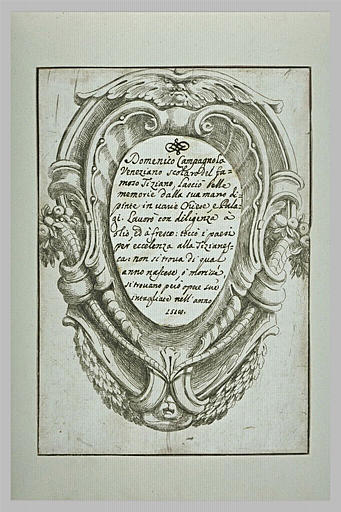 Domenico Campagnola
Veneziano scolaro del fa=
moso Tiziano, lasciò belle
memorie dalla sua mano di=
pinte in uarie Chiese e Pala=
zi. Lauorò con diligenza à
olio, ed à fresco: toccò i paesi
per eccelenza alla Tizianes=
ca: non si troua di qual
anno nascese, ò morisse
si trouano però opere sue
intagliate nell'anno
1518.